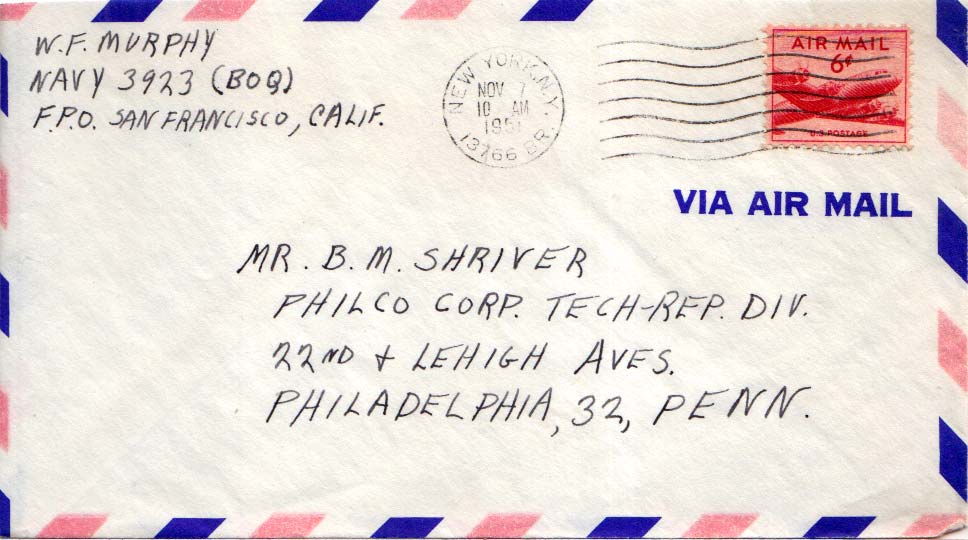 W.F. MURPHY
NAVY 3923 (BOQ)
F.P.O. SAN FRANCISCO, CALIF.
NEW YORK, N.Y.
NOV 7
10 AM
1951
13766 BR.
AIR MAIL
6¢
U.S. POSTAGE
VIA AIR MAIL
MR. B. M. SHRIVER
PHILCO CORP. TECH-REP. DIV.
22ND & LEHIGH AVES.
PHILADELPHIA, 32, PENN.